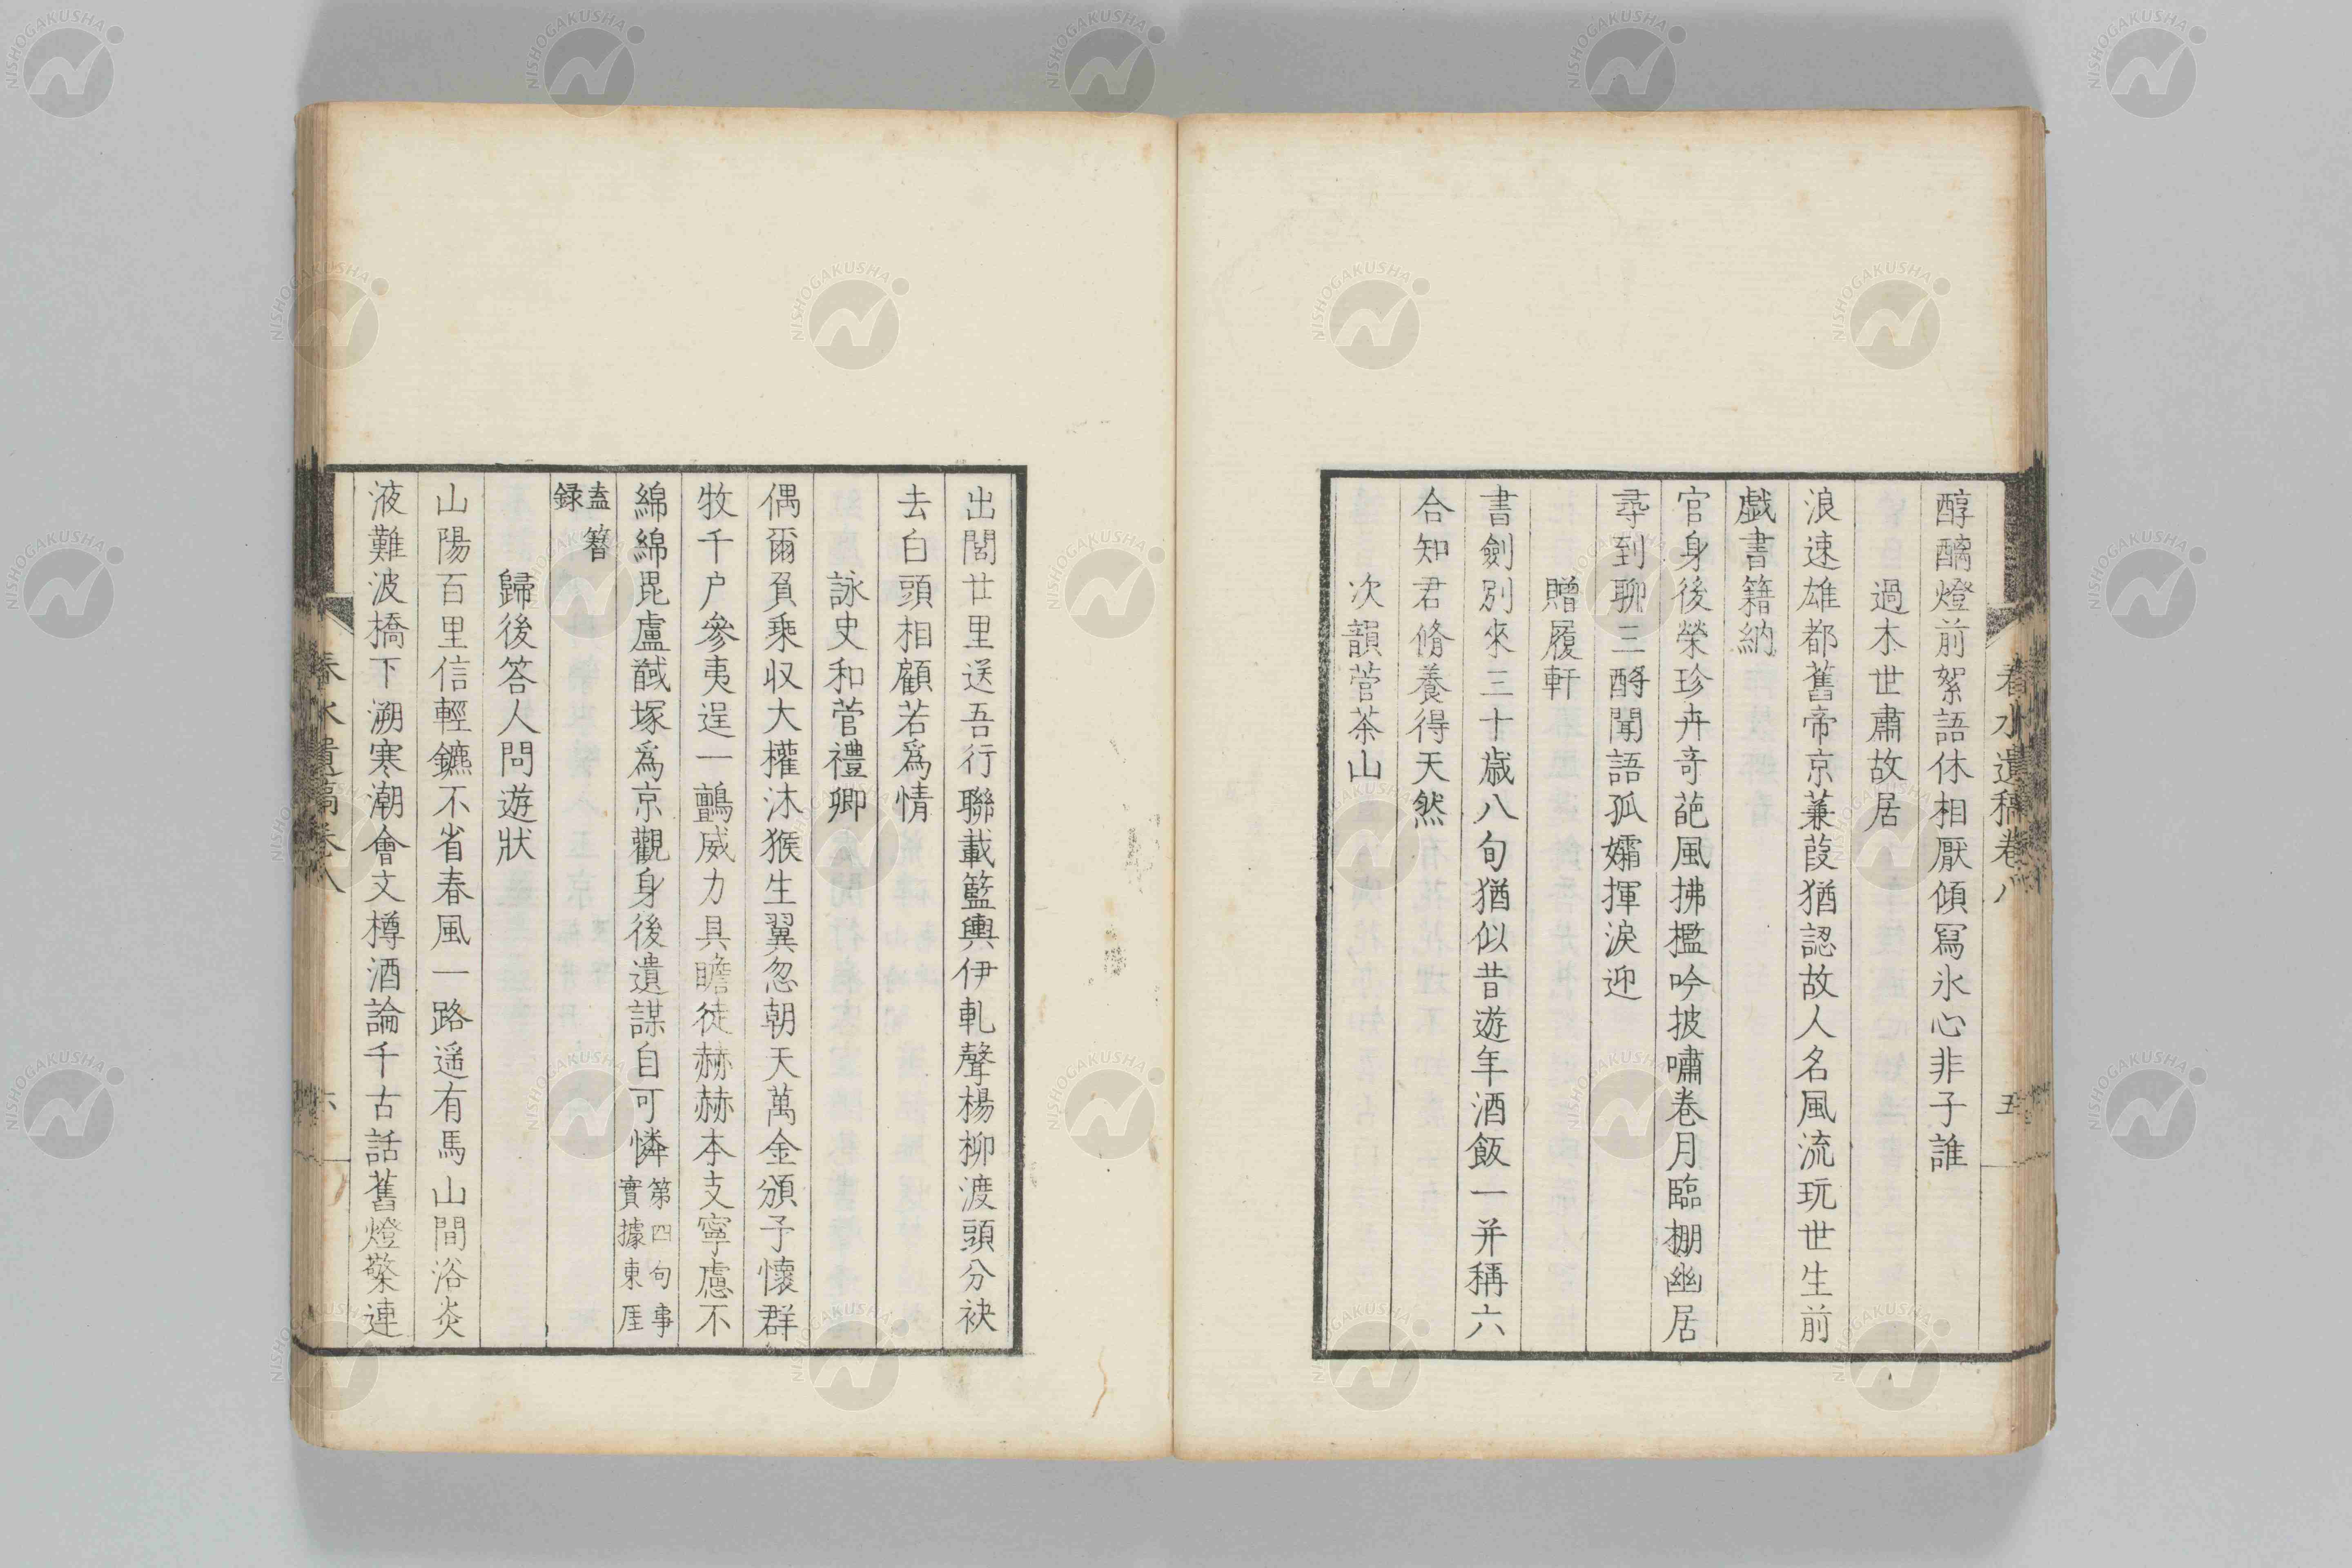 春水遺稿卷八
五
醇醨燈前絮語休相厭傾寫氷心非子誰
過木世肅故居
浪速雄都舊帝京蒹葭猶認故人名風流玩世生前
戲書籍納
官身後榮珍卉奇葩風拂檻吟披嘯卷月臨棚幽居
尋到聊三酹聞語孤孀揮淚迎
贈履軒
書劍別來三十歳八旬猶似昔遊年酒飯一并稱六
合知君脩養得天然
次韻菅茶山
出閭廿里送吾行聯載籃輿伊軋聲楊柳渡頭分袂
去白頭相顧若爲情
詠史和菅禮卿
偶爾負乘収大權沐猴生翼忽朝天萬金頒予懷群
牧千戸參夷逞一鸇威力具瞻徒赫赫本支寧慮不
綿綿毘盧馘塚爲京觀身後遺謀自可憐第四句事
實據東厓
盍簪
録
歸後答人問遊狀
山陽百里信輕鑣不省春風一路遥有馬山間浴炎
液難波橋下溯寒潮會文樽酒論千古話舊燈檠連
春水遺稿卷八
六
NISHOGAKUSHA